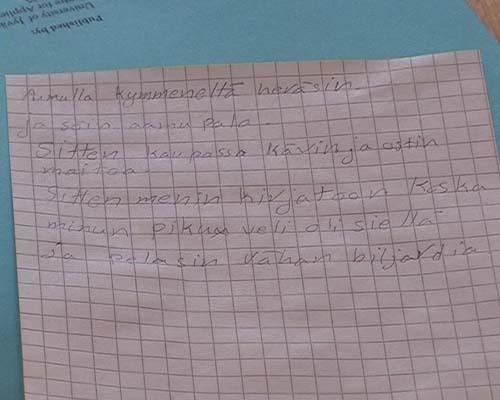 Published by:
University of Jyvä
tre for Applie
Aamulla kymmeneltä heräsin.
ja söin aamu pala.
Sitten kaupassa kävin ja ostin
maitoa
Sitten menin kirjatoon Koska
minun pikum veli oli siellä
Ja pelasin vähan biljardia